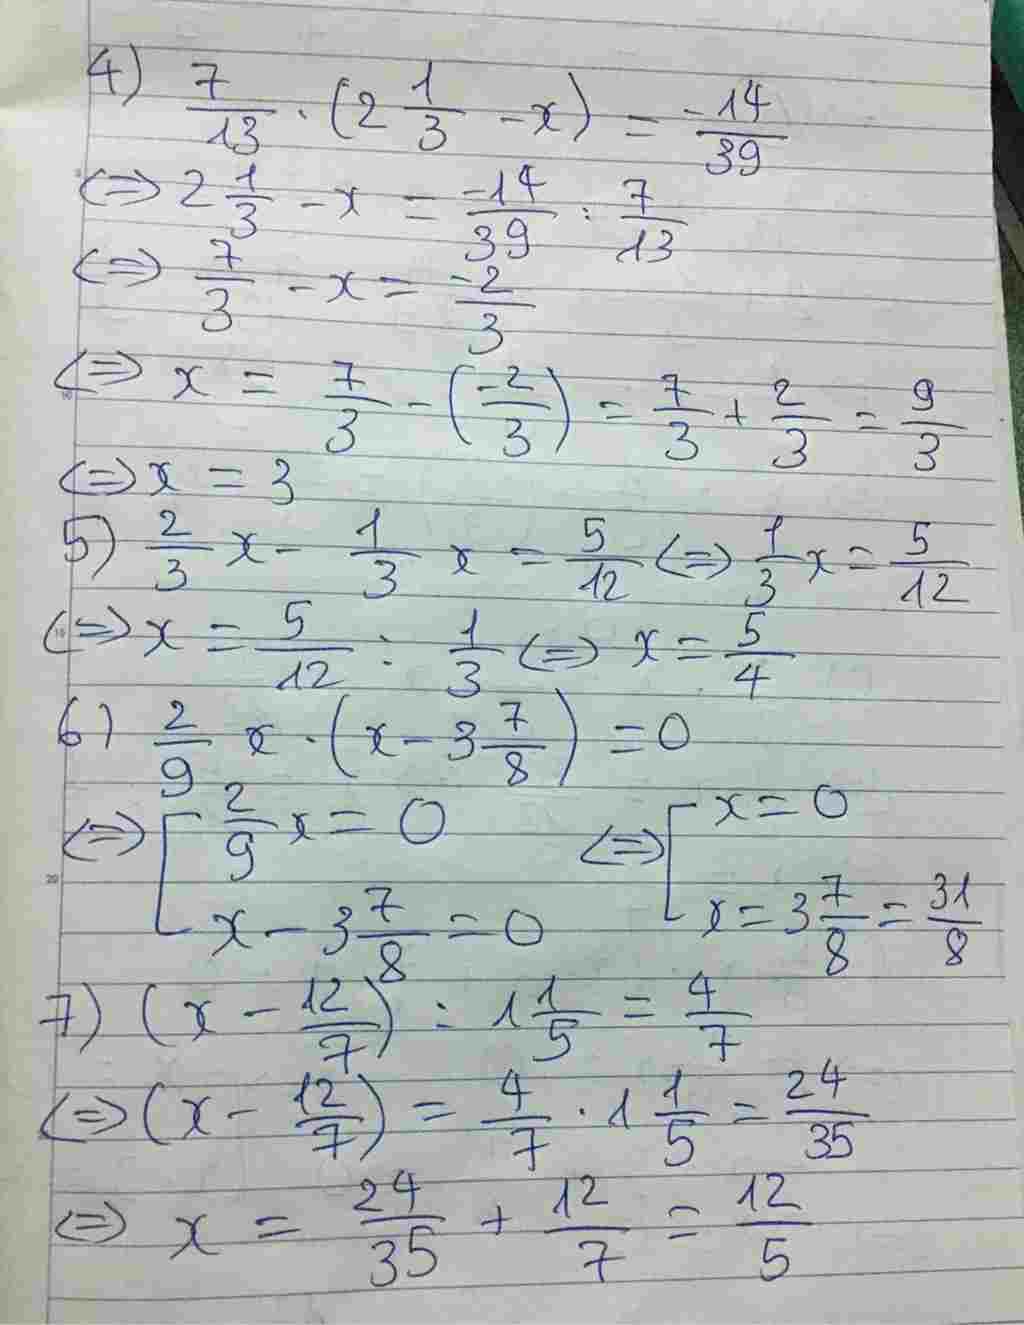 4) 7/13 . (2 1/3 - x) = -14/39
<=> 2 1/3 - x = -14/39 : 7/13
<=> 7/3 - x = -2/3
<=> x = 7/3 - (-2/3) = 7/3 + 2/3 = 9/3
<=> x = 3
5) 2/3 x - 1/3 x = 5/12 <=> 1/3 x = 5/12
<=> x = 5/12 : 1/3 <=> x = 5/4
6) 2/9 x . (x - 3 7/8) = 0
<=> [ 2/9 x = 0 <=> [ x = 0
x - 3 7/8 = 0 x = 3 7/8 = 31/8
7) (x - 12/7) : 1 1/5 = 4/7
<=> (x - 12/7) = 4/7 . 1 1/5 = 24/35
<=> x = 24/35 + 12/7 = 12/5